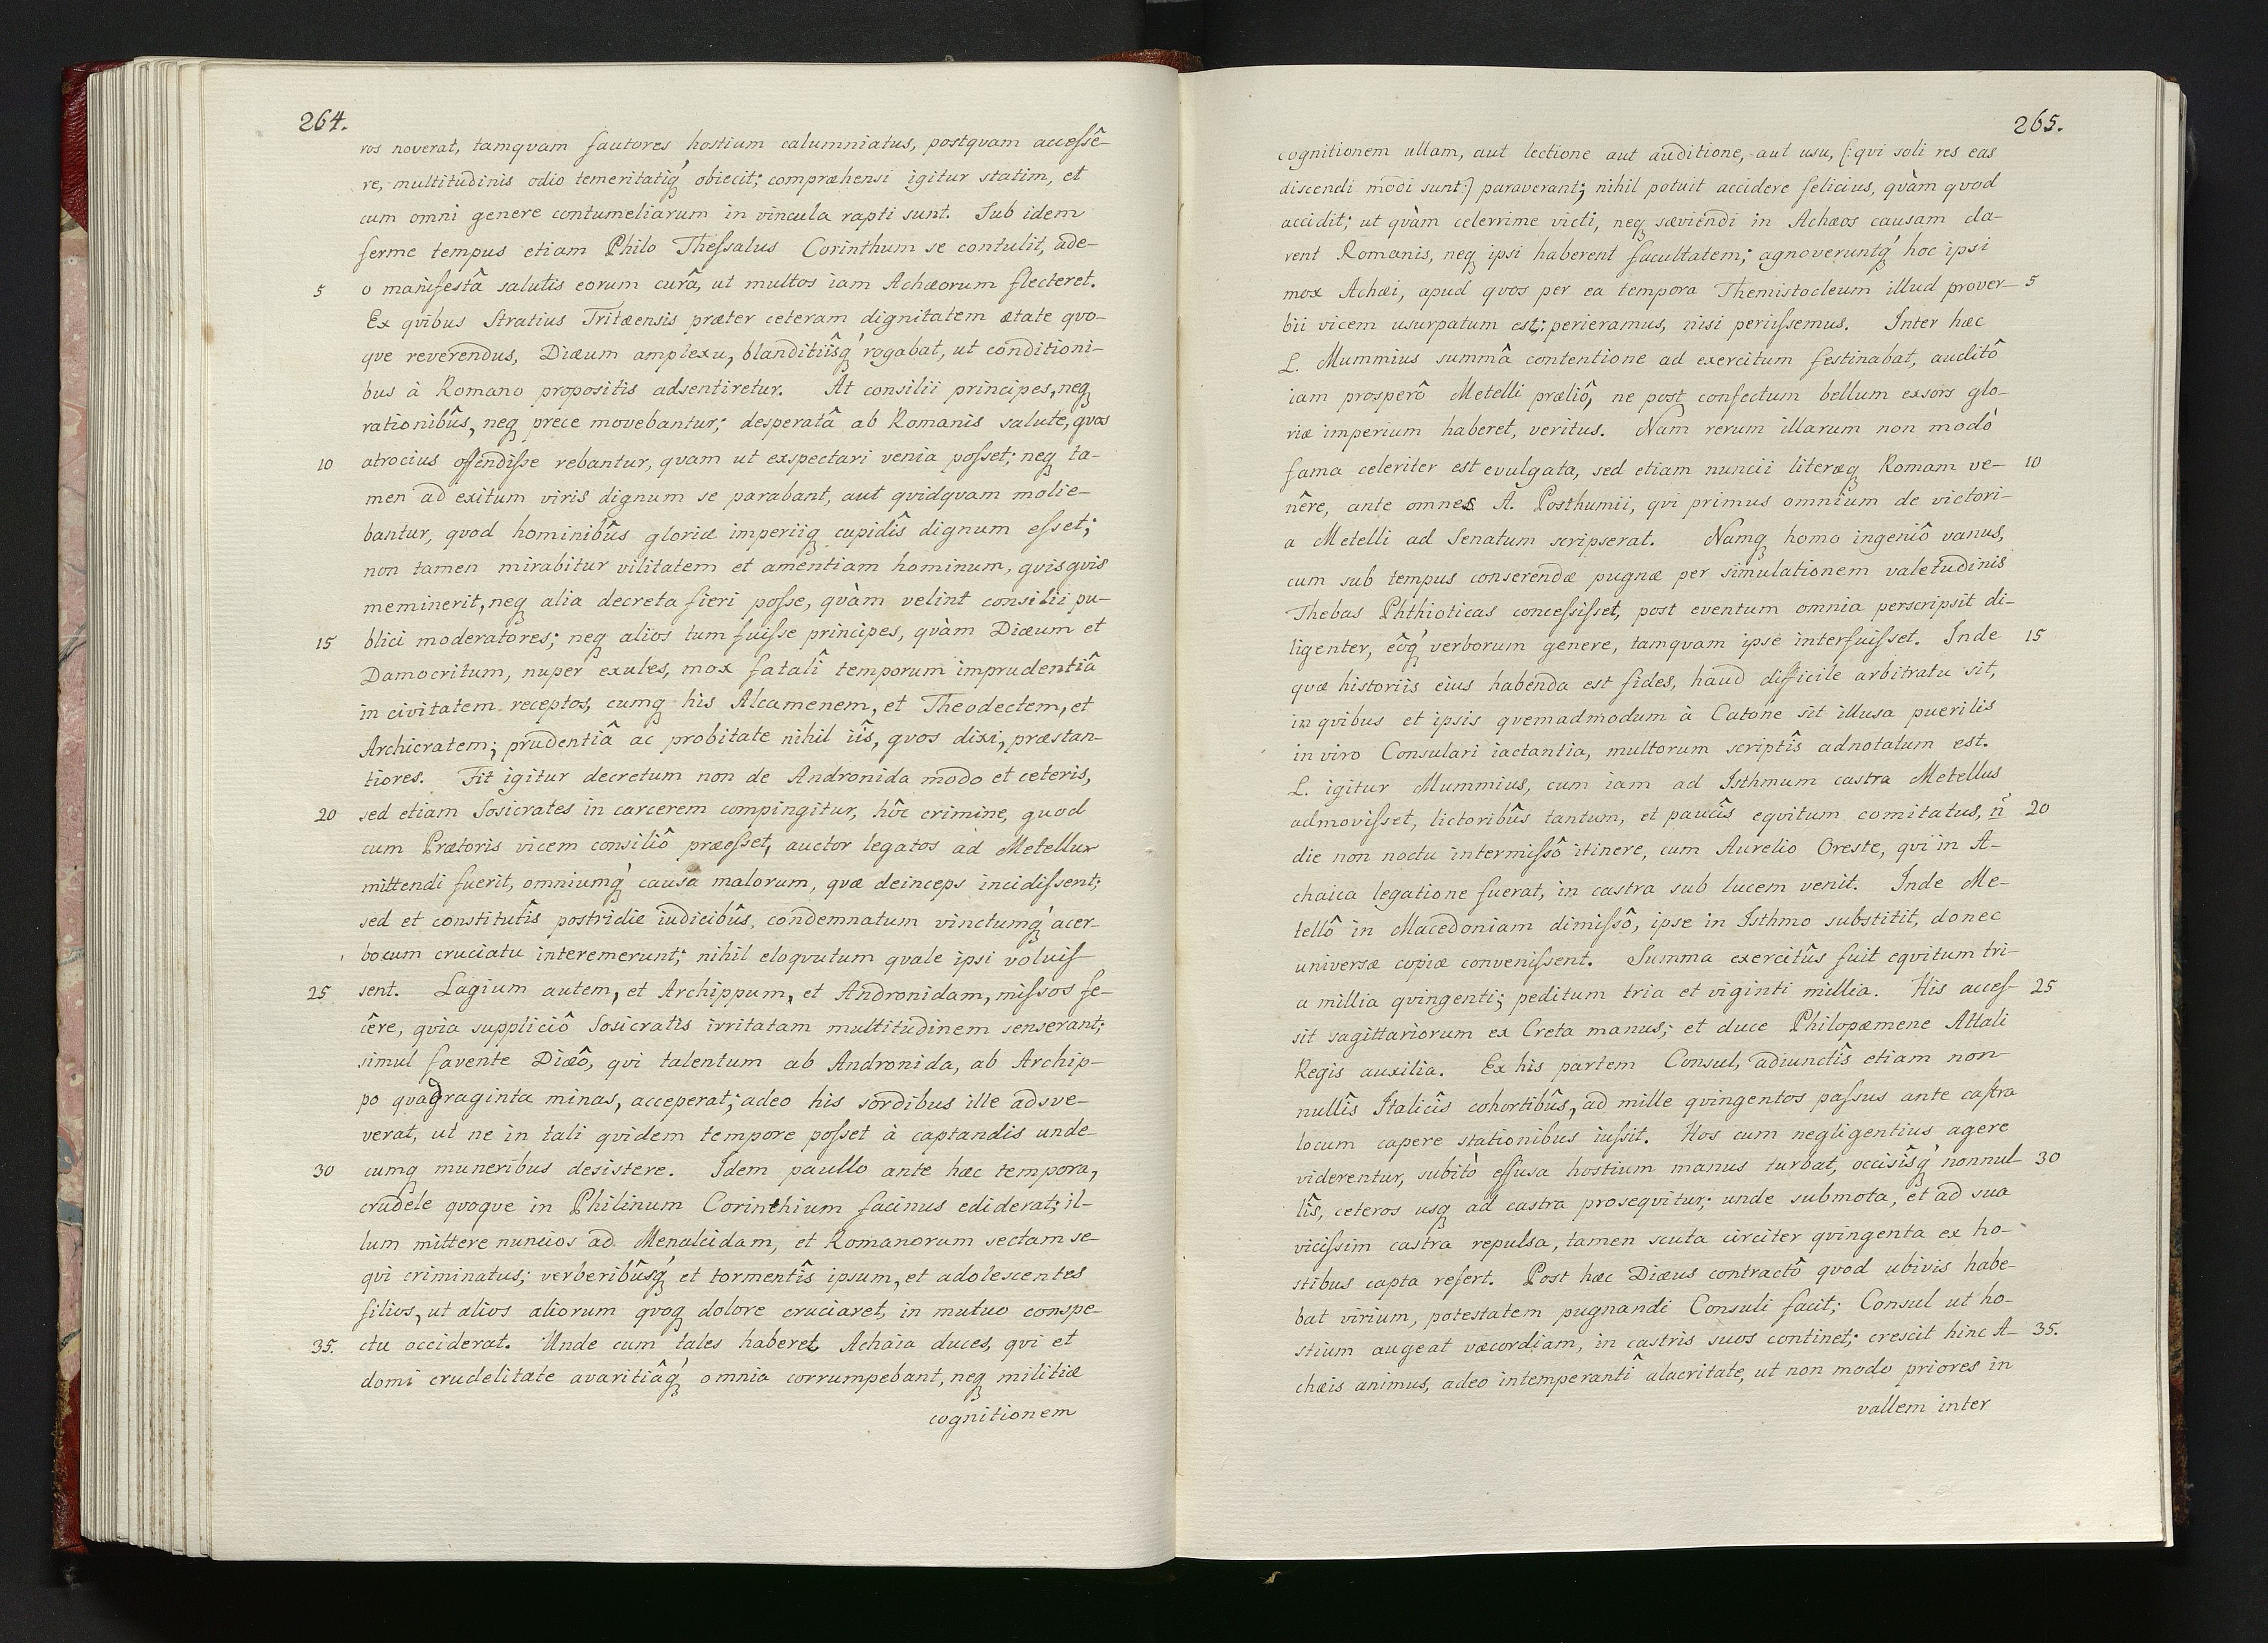 264.
ros noverat, tamquam fautores hostium calumniatus, postquam accessê-
re, multitudinis odio temeritatiq́ obiecit; compræhensi igitur statim, et
cum omni genere contumeliarum in vincula rapti sunt. Sub idem
ferme tempus etiam Philo Thessalus Corinthum se contulit, ade-
5 o manifestâ salutis eorum curâ, ut multos iam Achæorum flecteret.
Ex qvibus Stratius Tritæensis præter ceteram dignitatem ætate qvo-
qve reverendus, Diæum amplexu, blanditiîsq́ rogabat, ut conditioni-
bus à Romano propositis adsentiretur. At consilii principes, neq
rationibûs, neq prece movebantur; desperatâ ab Romanis salute, qvos
10 atrocius offendisse rebantur, qvam ut exspectari venia posset; neq ta-
men ad exitum viris dignum se parabant, aut qvidqvam molie-
bantur, qvod hominibûs gloriæ imperiiq cupidîs dignum esset;
non tamen mirabitur vilitatem et amentiam hominum, qvisqvis
meminerit, neq alia decreta fieri posse, qvàm velint consilii pu-
15 blici moderatores; neq alios tum fuisse principes, qvàm Diæum et
Damocritum, nuper exules, mox fatalî temporum imprudentiâ
in civitatem receptos, cumq his Alcamenem, et Theodectem, et
Archicratem; prudentiâ ac probitate nihil iîs, qvos dixi, præstan-
tiores. Fit igitur decretum non de Andronida modo et ceteris,
20 sed etiam Sosicrates in carcerem compingitur, hôc crimine, quod
cum Prætoris vicem consiliô præesset, auctor legatos ad Metellum
mittendi fuerit, omniumq́ causa malorum, qvæ deinceps incidissent;
sed et constitutîs postridie iudicibûs, condemnatum vinctumq́ acer-
bocum cruciatu interemerunt; nihil eloqvutum qvale ipsi voluis
25 sent. Lagium autem, et Archippum, et Andronidam, missos fe-
cêre, qvia suppliciô Sosicratis irritatam multitudinem senserant;
simul favente Diæô, qvi talentum ab Andronida, ab Archip-
po qvadraginta minas, acceperat; adeo his sordibus ille adsve-
verat, ut ne in tali qvidem tempore posset à captandis unde-
30 cumq muneribus desistere. Idem paullo ante hæc tempora,
crudele qvoqve in Philinum Corinthium facinus ediderat; il-
lum mittere nuncios ad Menalcidam, et Romanorum sectam se-
qvi criminatus; verberibûsq́ et tormentîs ipsum, et adolescentes
filios, ut alios aliorum qvoq dolore cruciaret, in mutuo conspe-
35. ctu occiderat. Unde cum tales haberet Achaia duces, qvi et
domi crudelitate avaritiâq́ omnia corrumpebant, neq militiæ
cognitionem
265.
cognitionem ullam, aut lectione aut auditione, aut usu, (:qvi soli res eas
discendi modi sunt:) paraverant; nihil potuit accidere felicius, qvàm qvod
accidit; ut qvàm celerrime victi, neq sæviendi in Achæos causam da-
rent Romanis, neq ipsi haberent facultatem; agnoveruntq́ hoc ipsi
mox Achæi, apud qvos per ea tempora Themistocleum illud prover- 5
bii vicem usurpatum est: perieramus, nisi periissemus. Inter hæc
L. Mummius summâ contentione ad exercitum festinabat, auditô
iam prosperô Metelli præliô, ne post confectum bellum exsors glo-
riæ imperium haberet, veritus. Nam rerum illarum non modò
fama celeriter est evulgata, sed etiam nuncii literæq Romam ve- 10
nêre, ante omnes A. Posthumii, qvi primus omnium de victori-
a Metelli ad Senatum scripserat. Namq homo ingeniô vanus,
cum sub tempus conserendæ pugnæ per simulationem valetudinis
Thebas Phthioticas concessisset, post eventum omnia perscripsit di-
ligenter, eôq́ verborum genere, tamqvam ipse interfuisset. Inde 15
qvæ historiis eius habenda est fides, haud difficile arbitratu sit,
in qvibus et ipsis qvemadmodum à Catone sit illusa puerilis
in viro Consulari iactantia, multorum scriptîs adnotatum est.
L. igitur Mummius, cum iam ad Isthmum castra Metellus
admovisset, lictoribûs tantum, et paucîs eqvitum comitatus, n̄ 20
die non noctu intermissô itinere, cum Aurelio Oreste, qvi in A-
chaica legatione fuerat, in castra sub lucem venit. Inde Me-
tellô in Macedoniam dimissô, ipse in Isthmo substitit, donec
universæ copiæ convenissent. Summa exercitûs fuit eqvitum tri-
a millia qvingenti; peditum tria et viginti millia. His acces- 25
sit sagittariorum ex Creta manus; et duce Philopæmene Attali
Regis auxilia. Ex his partem Consul, adiunctîs etiam non
nullîs Italicîs cohortibûs, ad mille qvingentos passus ante castra
locum capere stationibus iussit. Hos cum negligentius agere
viderentur, subitò effusa hostium manus turbat, occisîsq́ nonnul- 30
lîs, ceteros usq ad castra proseqvitur; unde submota, et ad sua
vicissim castra repulsa, tamen scuta circiter qvingenta ex ho-
stibus capta refert. Post hæc Diæus contractô qvod ubivis habe-
bat virium, potestatem pugnandi Consuli facit; Consul ut ho-
stium augeat væcordiam, in castris suos continet; crescit hinc A- 35.
chæis animus, adeo intemperantî alacritate, ut non modo priores in
vallem inter